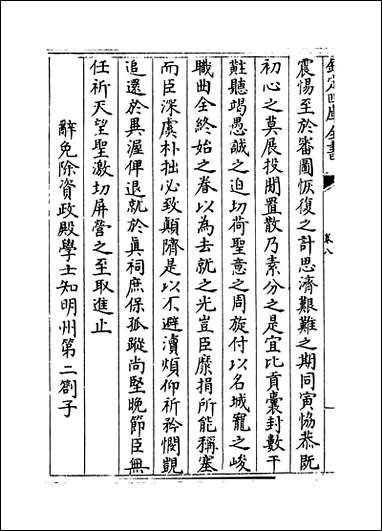 欽定四庫全書
卷八
震惕至於審圖恢復之計思濟艱難之期同寅協恭旣
初心之莫展投閒置散乃素分之是宜比貢囊封數干
黈聽竭愚誠之迫切荷聖意之周旋付以名城寵之峻
職曲全終始之眷以為去就之光豈臣糜捐所能稱塞
而臣深虞朴拙必致顛隮是以不避瀆煩仰祈矜憫覬
追還於異渥俾退就於眞祠庶保孤蹤尚堅晚節臣無
任祈天望聖激切屏營之至取進止
辭免除資政殿學士知明州第二劄子